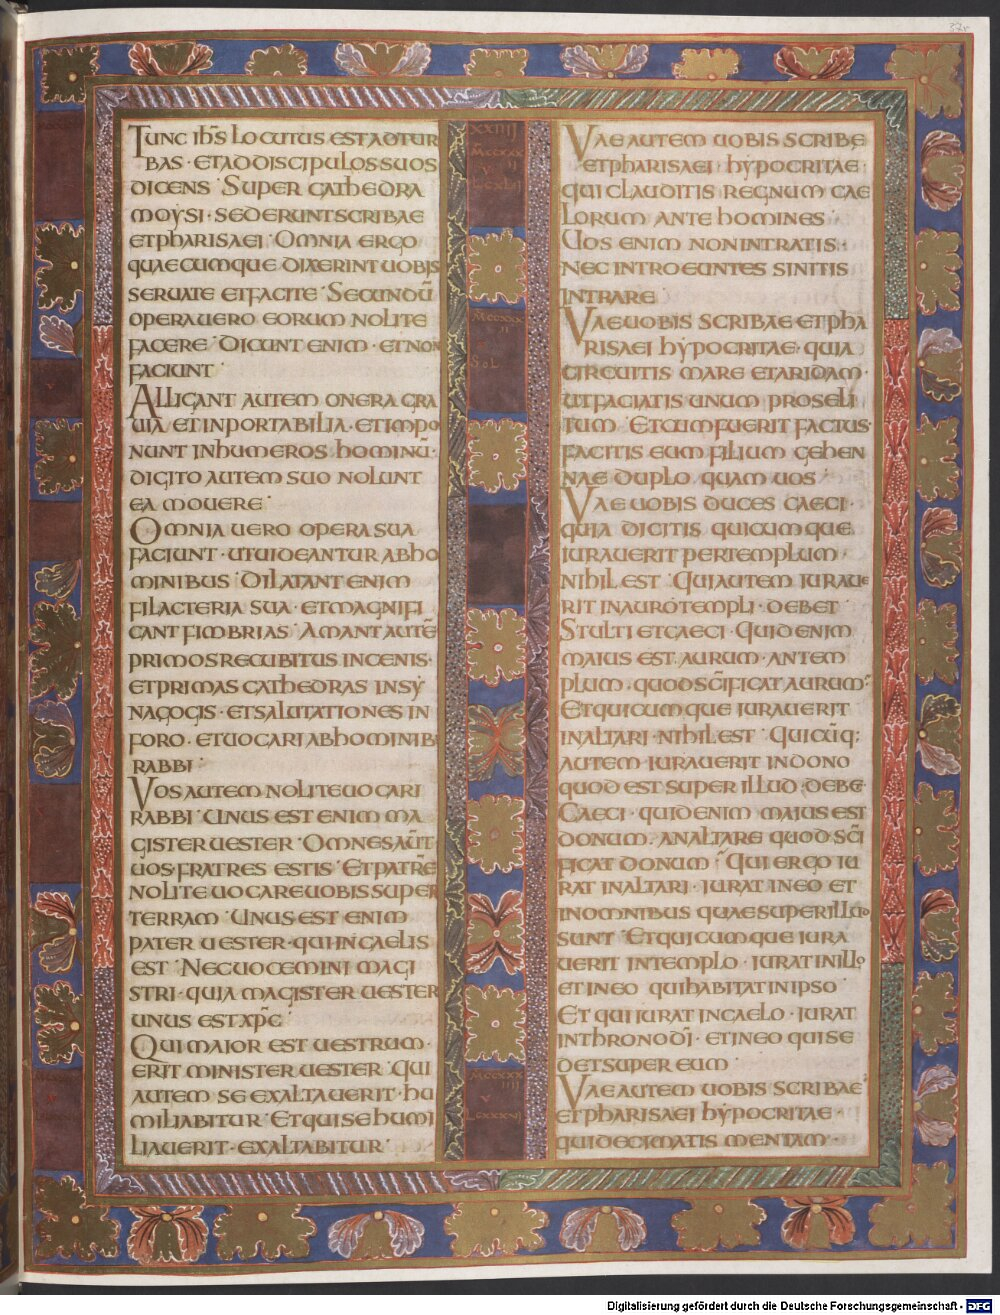 37r
TUNC IHS LOCUTUS EST AD TUR
BAS · ET AD DISCIPULOS SUOS
DICENS · SUPER CATHEDRA
MOYSI · SEDERUNT SCRIBAE
ET PHARISAEI · OMNIA ERGO
QUAECUMQUE DIXERINT UOBIS
SERUATE ET FACITE · SECUNDŪ
OPERA UERO EORUM NOLITE
FACERE · DICUNT ENIM · ET NON
FACIUNT ·
ALLIGANT AUTEM ONERA GRA
UIA ET INPORTABILIA · ET IMPO
NUNT IN HUMEROS HOMINŪ ·
DIGITO AUTEM SUO NOLUNT
EA MOUERE ·
OMNIA UERO OPERA SUA
FACIUNT · UT UIDEANTUR AB HO
MINIBUS · DILATANT ENIM
FILACTERIA SUA · ET MAGNIFI
CANT FIMBRIAS · AMANT AUTĒ
PRIMOS RECUBITUS IN CENIS ·
ET PRIMAS CATHEDRAS IN SY
NAGOGIS · ET SALUTATIONES IN
FORO · ET UOCARI AB HOMINIB
RABBI ·
VOS AUTEM NOLITE UOCARI
RABBI · UNUS EST ENIM MA
GISTER UESTER · OMNES AŪT
UOS FRATRES ESTIS · ET PATRĒ
NOLITE UOCARE UOBIS SUPER
TERRAM · UNUS EST ENIM
PATER UESTER · QUI IN CAELIS
EST · NEC UOCEMINI MAGI
STRI · QUIA MAGISTER UESTER
UNUS EST XPC ·
QUI MAIOR EST UESTRUM ·
ERIT MINISTER UESTER · QUI
AUTEM SE EXALTAUERIT · HU
MILIABITUR · ET QUI SE HUMI
LIAUERIT · EXALTABITUR ·
VAE AUTEM UOBIS SCRIBE
ET PHARISAEI HYPOCRITAE ·
QUI CLAUDITIS REGNUM CAE
LORUM ANTE HOMINES ·
UOS ENIM NON INTRATIS ·
NEC INTROEUNTES SINITIS
INTRARE ·
VAE UOBIS SCRIBAE ET PHA
RISAEI HYPOCRITAE · QUIA
CIRCUITIS MARE ET ARIDAM ·
UT FACIATIS UNUM PROSELI
TUM · ET CUM FUERIT FACTUS ·
FACITIS EUM FILIUM GEHEN
NAE DUPLO QUAM UOS ·
VAE UOBIS DUCES CAECI ·
QUIA DICITIS QUICUMQUE
IURAUERIT PER TEMPLUM ·
NIHIL EST · QUI AUTEM IURAUE
RIT IN AURO TEMPLI · DEBET ·
STULTI ET CAECI · QUID ENIM
MAIUS EST AURUM · AN TEM
PLUM · QUOD SCIFICAT AURUM ·
ET QUICUMQUE IURAUERIT
IN ALTARI · NIHIL EST · QUICŪQ;
AUTEM IURAUERIT IN DONO
QUOD EST SUPER ILLUD · DEBET
CAECI · QUID ENIM MAIUS EST
DONUM · AN ALTARE QUOD SCI
FICAT DONUM · QUI ERGO IU
RAT IN ALTARI · IURAT IN EO ET
IN OMNIBUS QUAE SUPER ILLUD
SUNT · ET QUICUMQUE IURA
UERIT IN TEMPLO · IURAT IN ILLO
ET IN EO QUI HABITAT IN IPSO ·
ET QUI IURAT IN CAELO · IURAT
IN THRONO DI · ET IN EO QUI SE
DET SUPER EUM ·
VAE AUTEM UOBIS SCRIBAE
ET PHARISAEI HYPOCRITAE ·
QUI DECIMATIS MENTAM ·
Digitalisierung gefördert durch die Deutsche Forschungsgemeinschaft - DFG